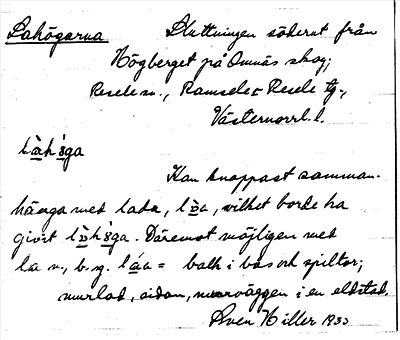 Lahögarna
Sluttningen söderut från
Högberget på Omnäs skog;
Resele sn., Ramsele o Resele tg.,
Västernorrl. l.
Kan knappast samman-
hänga med lada, vilket borde ha
givit Däremot möjligen med
la n., b. sg. = balk i bås och spiltor;
murlad, sidan, murväggen i en eldstad.
Sven Hiller 1933